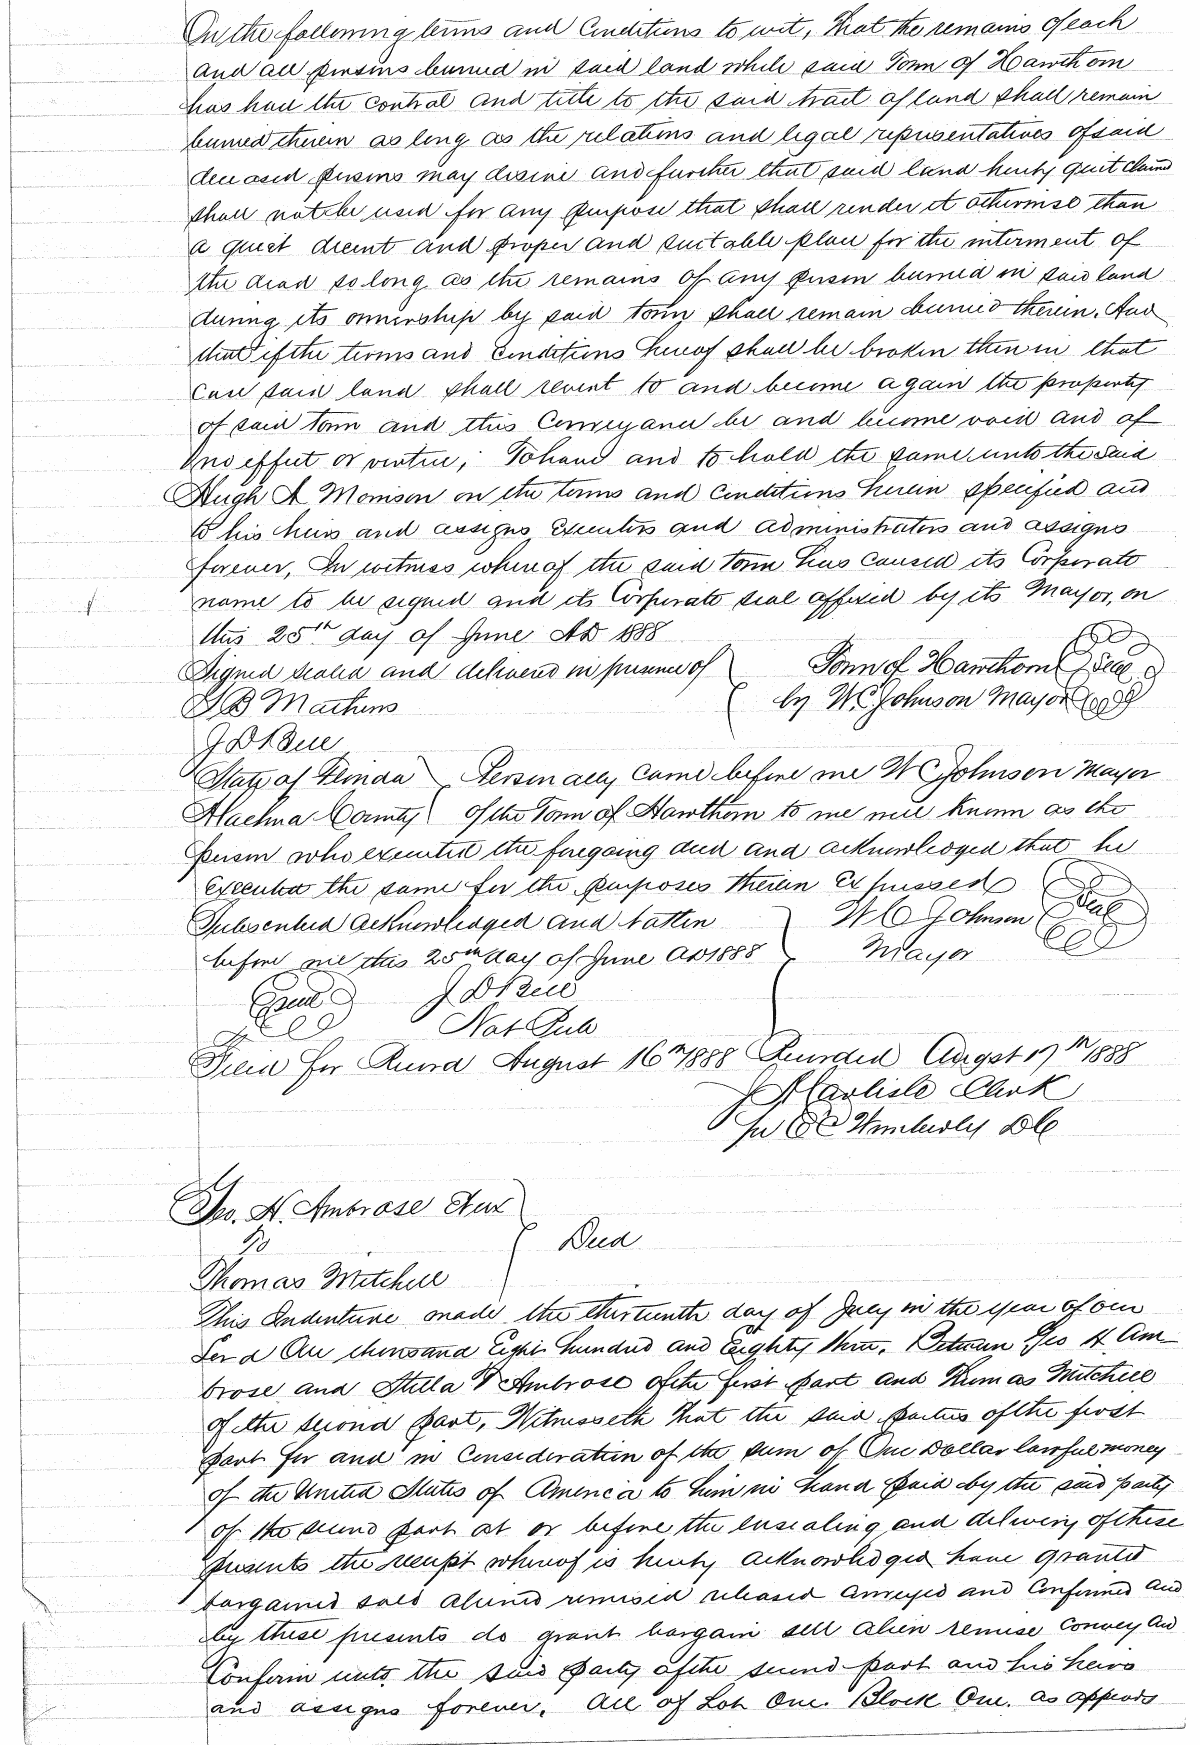 On the following terms and Conditions to wit, That the remains of each
and all persons burried in said land while said Town of Hawthorn
has had the control and title to the said tract of land shall remain
burried therein as long as the relations and legal representatives of said
deceased persons may desire and further that said land hereby quit claimed
shall not be used for any purpose that shall render it otherwise than
a quiet decent and proper and suitable place for the interment of
the dead so long as the remains of any person burried in said land
during its ownership by said town shall remain burried therein. And
that if the terms and Conditions hereof shall be broken then in that
case said land shall revert to and become again the property
of said town and this Conveyance be and become void and of
no effect or virtue; To have and to hold the same unto the said
Hugh A Morrison on the terms and Conditions herein specified and
to his heirs and assigns Executors and administrators and assigns
forever, In witness whereof the said town has caused its Corporate
name to be signed and its Corporate seal affixed by its Mayor, on
this 25th day of June AD 1888
Signed sealed and delivered in presence of Town of Hawthorn Seal
by W.C. Johnson Mayor
B Mathins
J D Rue
State of Florida Personaly came before me W C Johnson Mayor
Alachua County of the Town of Hawthorn to me well known as the
person who executed the foregoing deed and acknowledged that he
executed the same for the purposes therein Expressed
Subscribed acknowledged and W C Johnson Seal
before me this 25th day of June AD 1888 Mayor
Seal J D Rue
Not Pub
Filed for Record August 16th 1888 Recorded Augst 17th 1888
Carlisle Clerk
per Wimberly DC
Geo. H. Ambrose & ux
To Deed
Thomas Mitchell
This Indenture made the thirteenth day of July in the year of our
Lord One thousand Eight hundred and Eighty three, Between Geo H Am-
brose and Stella V Ambrose of the first part and Thomas Mitchell
of the second part, Witnesseth that the said parties of the first
part for and in Consideration of the sum of One Dollar lawful money
of the United States of America to him in hand paid by the said party
of the second part at or before the ensealing and delivery of these
presents the receipt whereof is hereby acknowledged have granted
bargained sold aliened remised released conveyed and Confirmed and
by these presents do grant bargain sell alien remise convey and
Confirm unto the said party of the second part and his heirs
and assigns forever. All of Lot One Block One. as appears